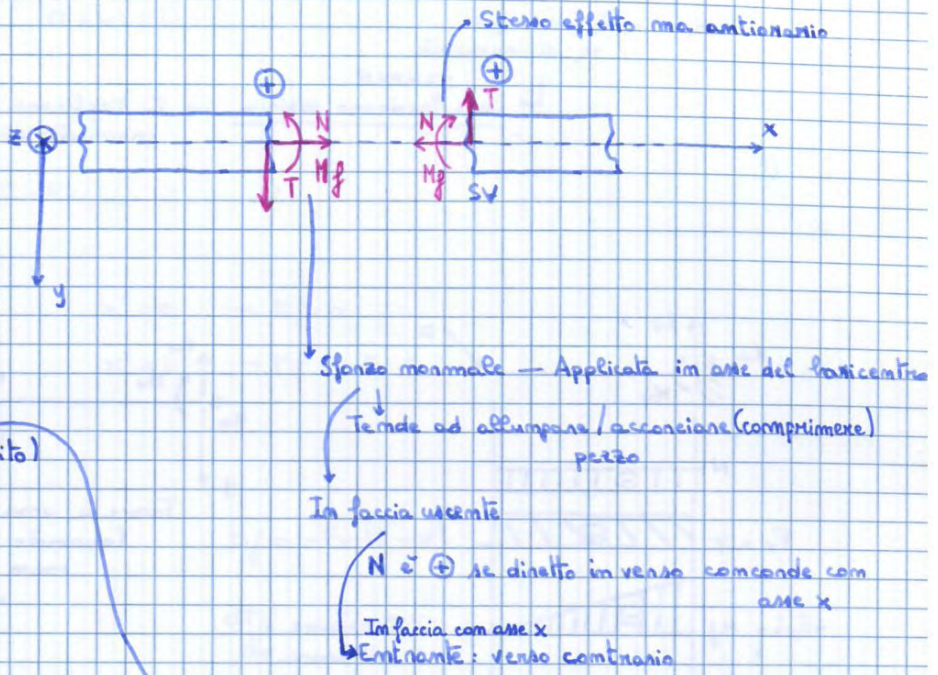 Stesso effetto ma antiorario
+ +
T
N N x
z
Mf Mf
T
SV
y
Sforzo normale — Applicata in asse del baricentro
Tende ad allungare/accorciare (comprimere)
pezzo
ito)
In faccia uscente
N è + se diretto in verso concorde con
asse x
In faccia con asse x
Entrante: verso contrario